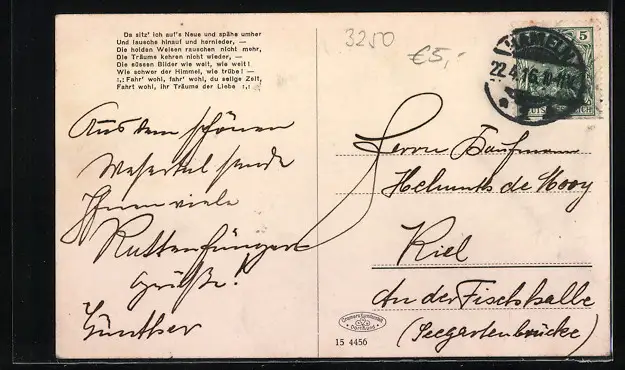 Da sitz' ich auf's Neue und spähe umher
Und lausche hinauf und hernieder, —
Die holden Weisen rauschen nicht mehr,
Die Träume kehren nicht wieder, —
Die süssen Bilder wie weit, wie weit!
Wie schwer der Himmel, wie trübe! —
:,: Fahr' wohl, fahr' wohl, du selige Zeit,
Fahrt wohl, ihr Träume der Liebe :,:
3250
€5,-
HAMELN
22.4.16.
5
Aus dem schönen
Wesertal sende
Ihnen viele
Rattenfänger
Grüße!
Günther
Herrn Kaufmann
Helmuth de Mooy
Kiel
An der Fischhalle
(Seegartenbrücke)
Dortmund
15 4456